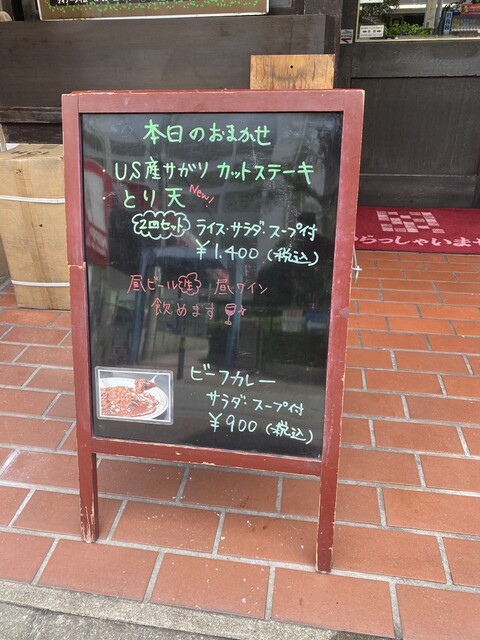 本日のおまかせ
・US産サガリ カットステーキ
・とり天 New!
2皿セット ライス・サラダ・スープ付
￥1,400 (税込)
昼ビール(生) 昼ワイン
飲めます
ビーフカレー
サラダ・スープ付
￥900 (税込)
いらっしゃいませ